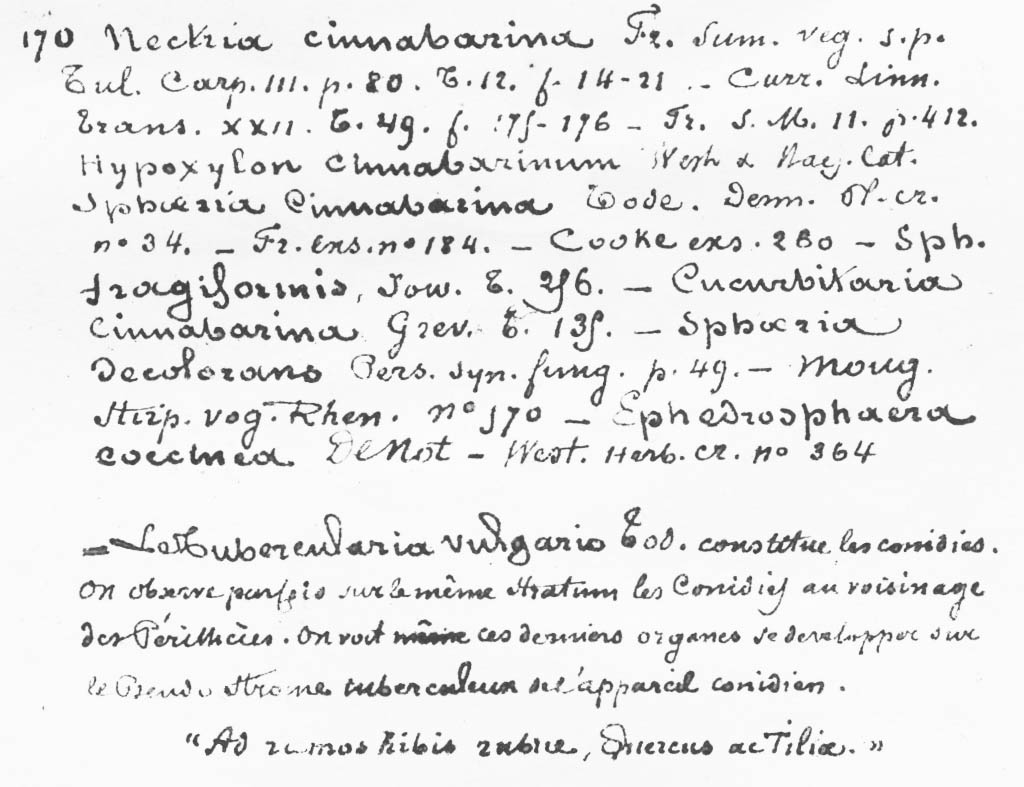 170 Nectria cinnabarina Fr. Sum. veg. s.p.
Tul. Carp. III. p. 80. T. 12. f. 14-21 - Curr. Linn.
Trans. XXII. T. 49. f. 175-176 - Fr. S. M. 11. p. 412.
Hypoxylon Cinnabarinum West &
Sphœria Cinnabarina Tode. Desm. Pl. cr.
n° 34. - Fr. exs. n° 184. - Cooke exs. 280 - Sph.
fragiformis, Sow. T. 256. - Cucurbitaria
Cinnabarina Grev. T. 135. - Sphœria
Decolorans Pers. Syn. fung. p. 49. - Moug.
Stirp. vog. Rhen. n° 570 - Ephedrosphaera
coccinea De Not - West. Herb. cr. n° 364
- Le Tubercularia vulgaris Tod. constitue les conidies.
On observe parfois sur le même stratum les Conidies au voisinage
des Périthèces. On voit même ces derniers organes se developper sur
le Pseudo strome tuberculeux de l'appareil conidien.
"Ad ramos Ribis rubræ, Quercus ac Tiliæ."